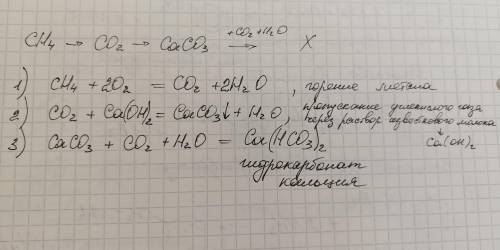 CH₄ → CO₂ → CaCO₃ +CO₂+H₂O → X
1) CH₄ + 2O₂ = CO₂ + 2H₂O, горение метана
2) CO₂ + Ca(OH)₂ = CaCO₃↓ + H₂O, пропускание углекислого газа
через раствор известкового молока
↓
Ca(OH)₂
3) CaCO₃ + CO₂ + H₂O = Ca(HCO₃)₂
гидрокарбонат
кальция